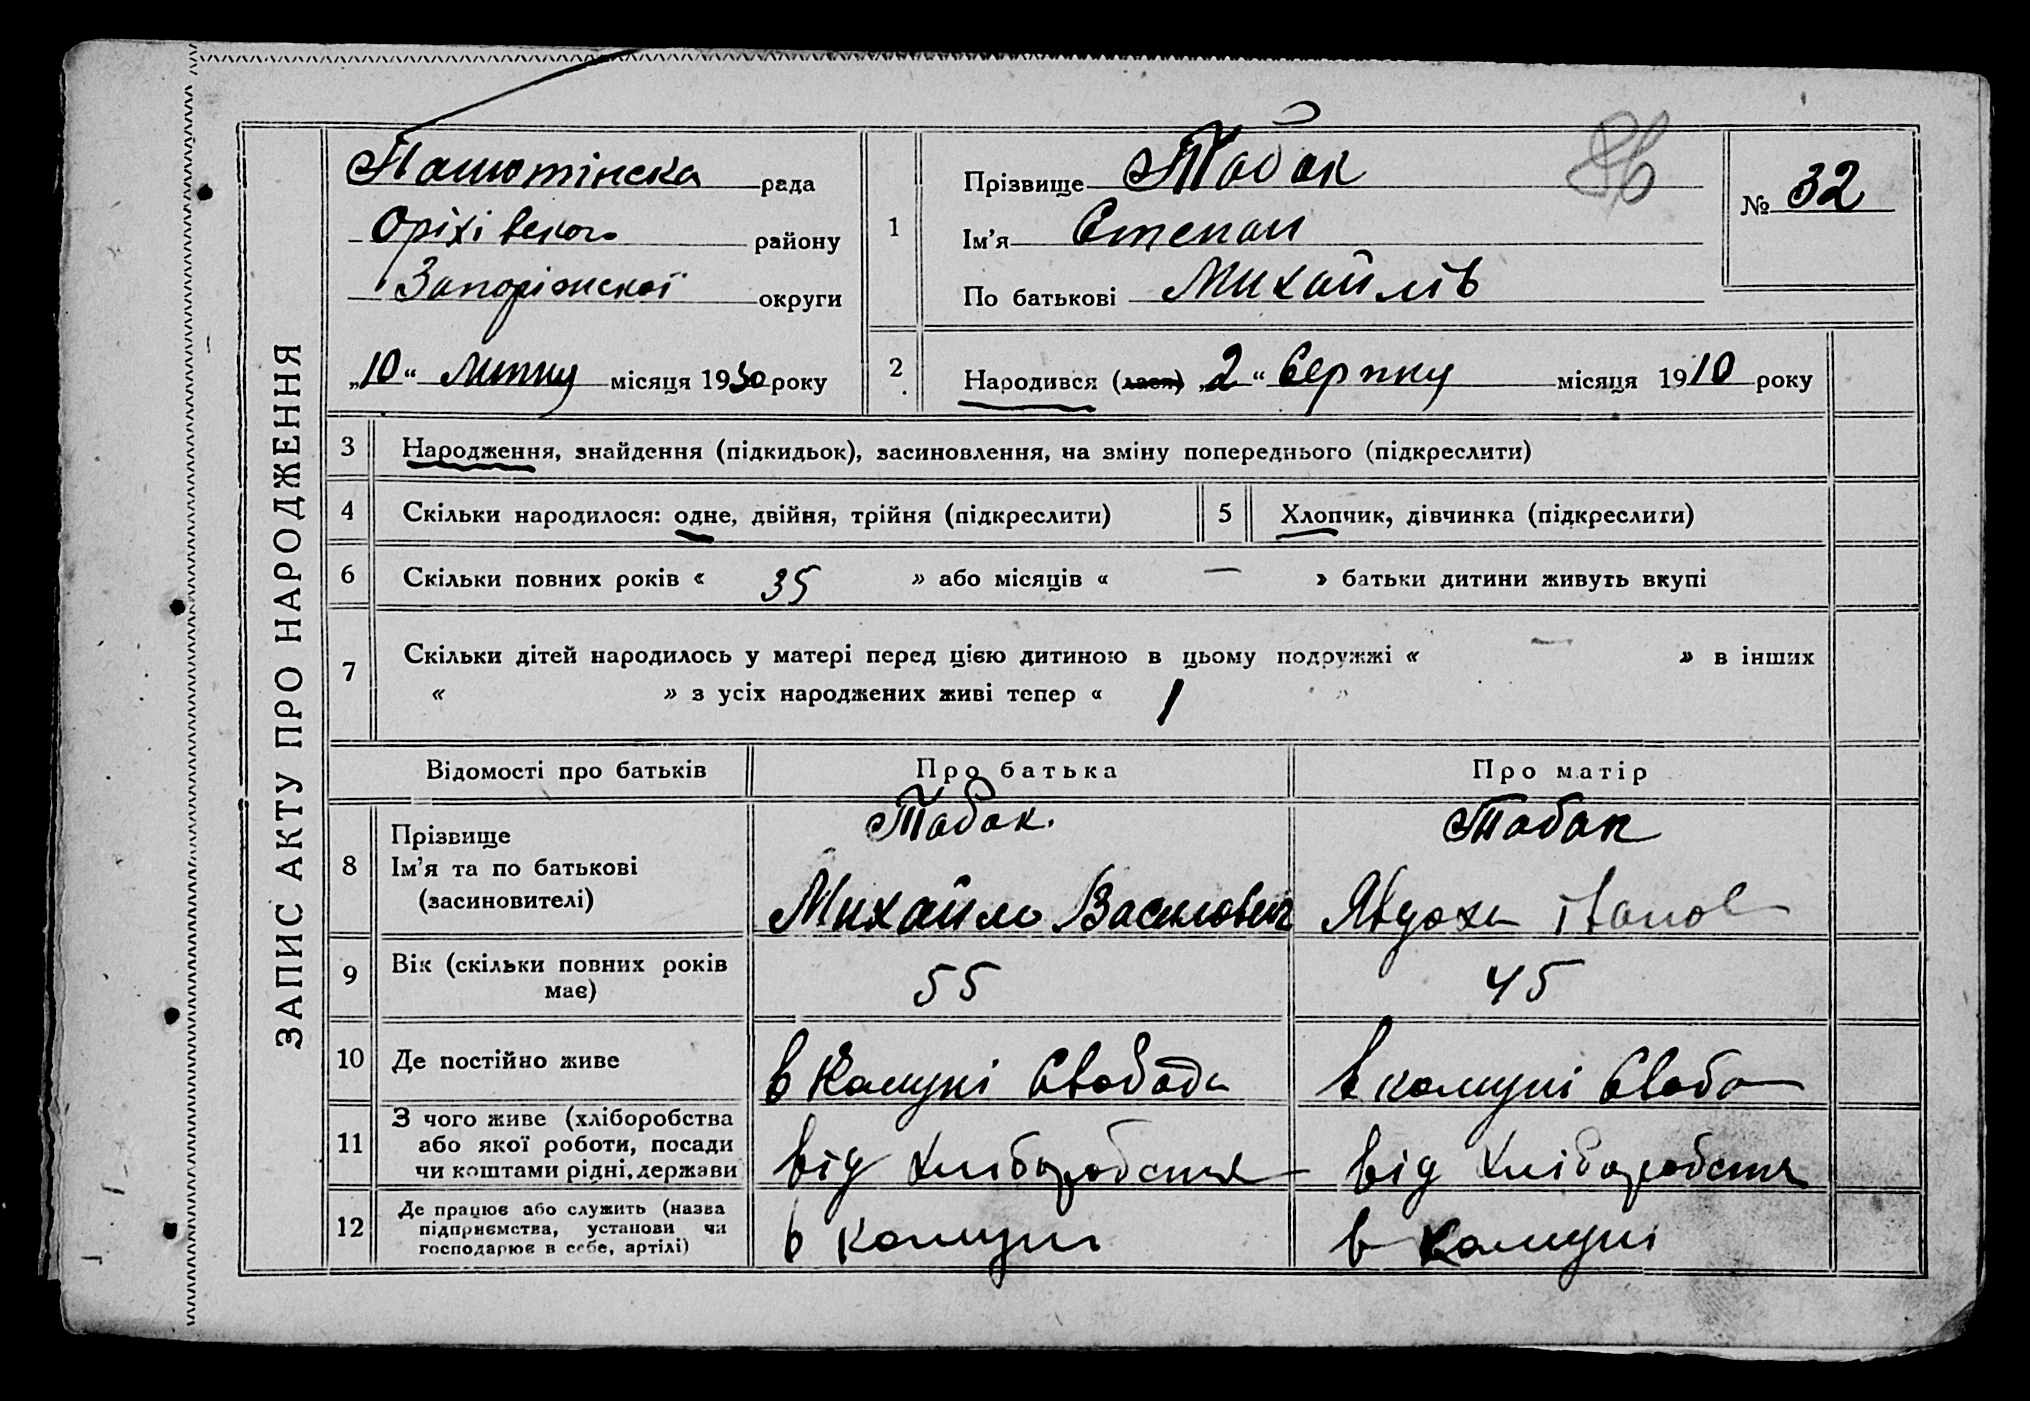 ЗАПИС АКТУ ПРО НАРОДЖЕННЯ
рада
Оріхівского району
Запоріжскої округи
„10“ липня місяця 1930 року
1
Прізвище Табак
Ім'я Степан
По батькові Михайлів
86
№ 32
2
Народився (лася) „2“ Серпня місяця 1910 року
3 Народження, знайдення (підкидьок), засиновлення, на зміну попереднього (підкреслити)
4 Скільки народилося: одне, двійня, трійня (підкреслити)
5 Хлопчик, дівчинка (підкреслити)
6 Скільки повних років « 35 » або місяців « — » батьки дитини живуть вкупі
7 Скільки дітей народилось у матері перед цією дитиною в цьому подружжі « — » в інших
« » з усіх народжених живі тепер « 1 »
Відомості про батьків Про батька Про матір
8 Прізвище
Ім'я та по батькові
(засиновителі)
Табак.
Михайло Василович
Табак
Явдоха Іванов
9 Вік (скільки повних років
має)
55 45
10 Де постійно живе
в Комуні Свобода в комуні Свобо
11 З чого живе (хліборобства
або якої роботи, посади
чи коштами рідні, держави
від хліборобства від хліборобства
12 Де працює або служить (назва
підприємства, установи чи
господарює в себе, артілі)
в комуні в комуні